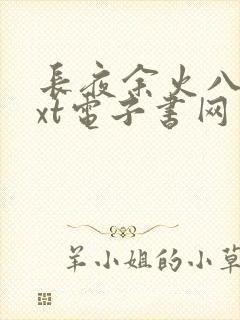 長夜余火八
xt電子書网
羊小姐的小草